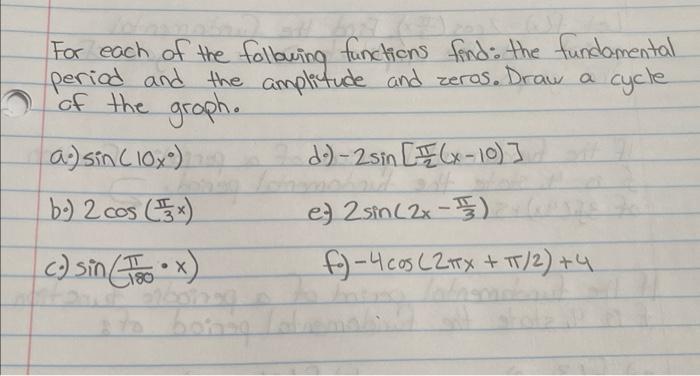 For each of the following functions find: the fundamental
period and the amplitude and zeros. Draw a cycle
of the graph.
a.) sin(10x°)
d.) -2sin[π/2(x-10)]
b.) 2cos(π/3 x)
e.) 2sin(2x-π/3)
c.) sin(π/180 • x)
f.) -4cos(2πx + π/2)+4